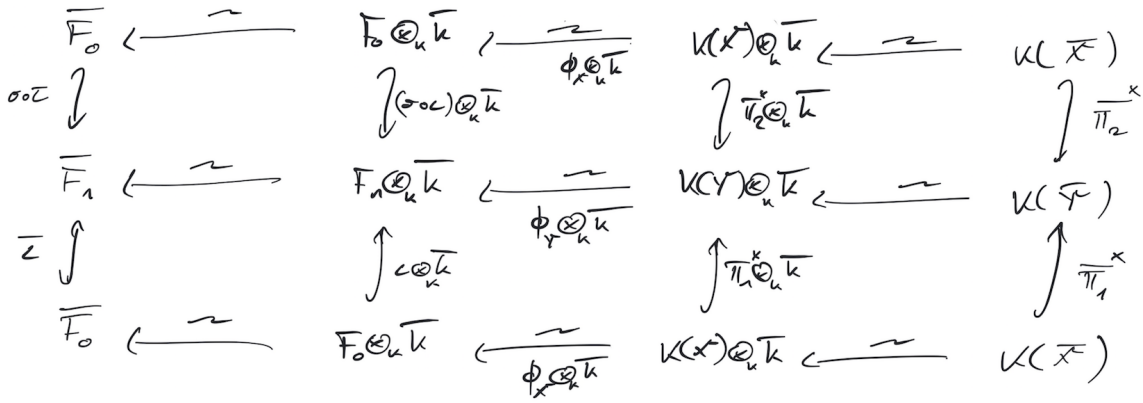 $\overline{F_0} \xleftarrow{\sim} F_0 \otimes_k \overline{k} \xleftarrow[\phi_X \otimes_k \overline{k}]{\sim} K(X) \otimes_k \overline{k} \xleftarrow{\sim} K(\overline{X})$
$\overline{\sigma \circ \iota} \quad (\sigma \circ \iota) \otimes_k \overline{k} \quad \pi_2^* \otimes_k \overline{k} \quad \overline{\pi_2}^*$
$\overline{F_1} \xleftarrow{\sim} F_1 \otimes_k \overline{k} \xleftarrow[\phi_Y \otimes_k \overline{k}]{\sim} K(Y) \otimes_k \overline{k} \xleftarrow{\sim} K(\overline{Y})$
$\overline{\iota} \quad \iota \otimes_k \overline{k} \quad \pi_1^* \otimes_k \overline{k} \quad \overline{\pi_1}^*$
$\overline{F_0} \xleftarrow{\sim} F_0 \otimes_k \overline{k} \xleftarrow[\phi_X \otimes_k \overline{k}]{\sim} K(X) \otimes_k \overline{k} \xleftarrow{\sim} K(\overline{X})$